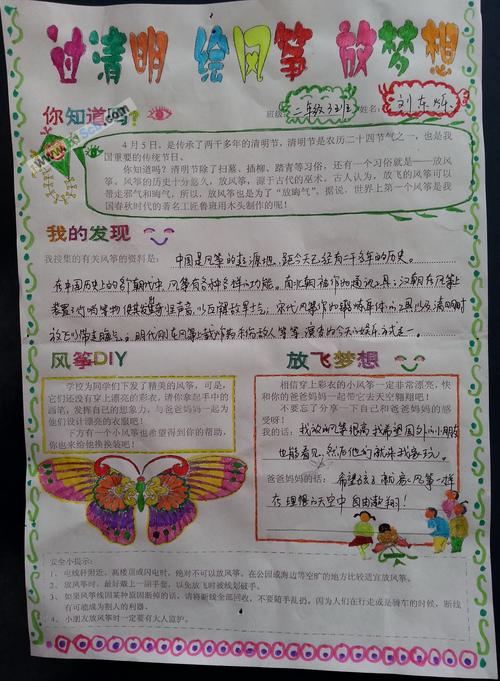 过清明 绘风筝 放梦想
你知道吗？
班级 二年级3班 姓名：刘东烁
4月5日，是传承了两千多年的清明节，清明节是农历二十四节气之一，也是我
国重要的传统节日。
你知道吗？清明节除了扫墓、插柳、踏青等习俗，还有一个习俗就是——放风
筝。风筝的历史十分悠久，放风筝，源于古代的巫术。古人认为，放飞的风筝可以
带走邪气和晦气，所以，放风筝也是为了“放晦气”。据说，世界上第一个风筝是我
国春秋时代的著名工匠鲁班用木头制作的呢！
我的发现
我搜集的有关风筝的资料是：中国是风筝的起源地，距今天已经有二千多年的历史。
在中国历史上的各个朝代中，风筝有各种各样的功能。南北朝被作为通讯工具；汉朝在风筝上
装置
宋代风筝作为锻炼身体的工具以及清明时
放飞以带走晦气；明代
风筝DIY
学校为同学们下发了精美的风筝，可是，
它们还没有穿上漂亮的彩衣，请你拿起手中的
画笔，发挥自己的想象力，与爸爸妈妈一起为
他们设计漂亮的衣服吧！
下方有一个小风筝也希望得到你的帮助，
你也来给他换换装吧！
放飞梦想
相信穿上彩衣的小风筝一定非常漂亮，快
和你的爸爸妈妈一起带它去天空翱翔吧！
不要忘了分享一下自己和爸爸妈妈的感
受呀！
我的话：我放的风筝很高，我希望国外的小朋友
也能看见，然后他们就来找我玩。
爸爸妈妈的话：希望孩子和风筝一样
在理想的天空中自由翱翔！
安全小提示：
1、电线杆附近、高楼顶或闪电时，绝对不可以放风筝。在公园或海边等空旷的地方比较适宜放风筝。
2、放风筝时，最好戴上一副手套，以免放飞时被线划破手。
3、如果风筝线因某种原因断掉的话，请将断线全部回收，不要随手乱扔。因为人们在行走或是骑车的时候，断线
有可能成为割人的利器。
4、小朋友放风筝时一定要有大人监护。